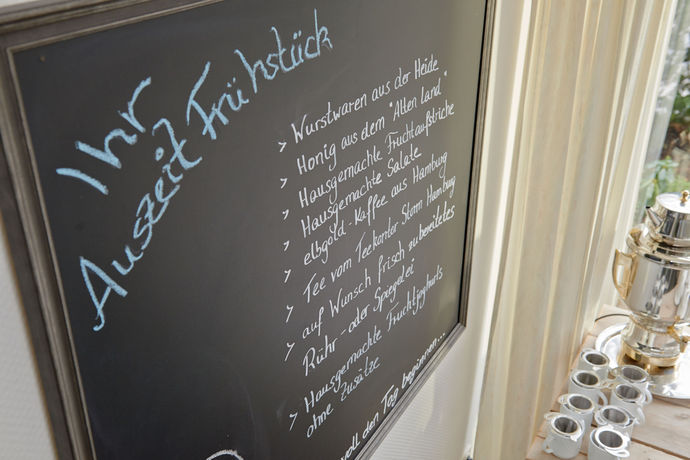 Ihr
Auszeit Frühstück
> Wurstwaren aus der Heide
> Honig aus dem "Alten Land"
> Hausgemachte Fruchtaufstriche
> Hausgemachte Salate
> elbgold-Kaffee aus Hamburg
> Tee vom Teekontor Storm Hamburg
> auf Wunsch frisch zubereitetes
Rühr- oder Spiegelei
> Hausgemachte Fruchtjoghurts
ohne Zusätze
voll den Tag beginnen...